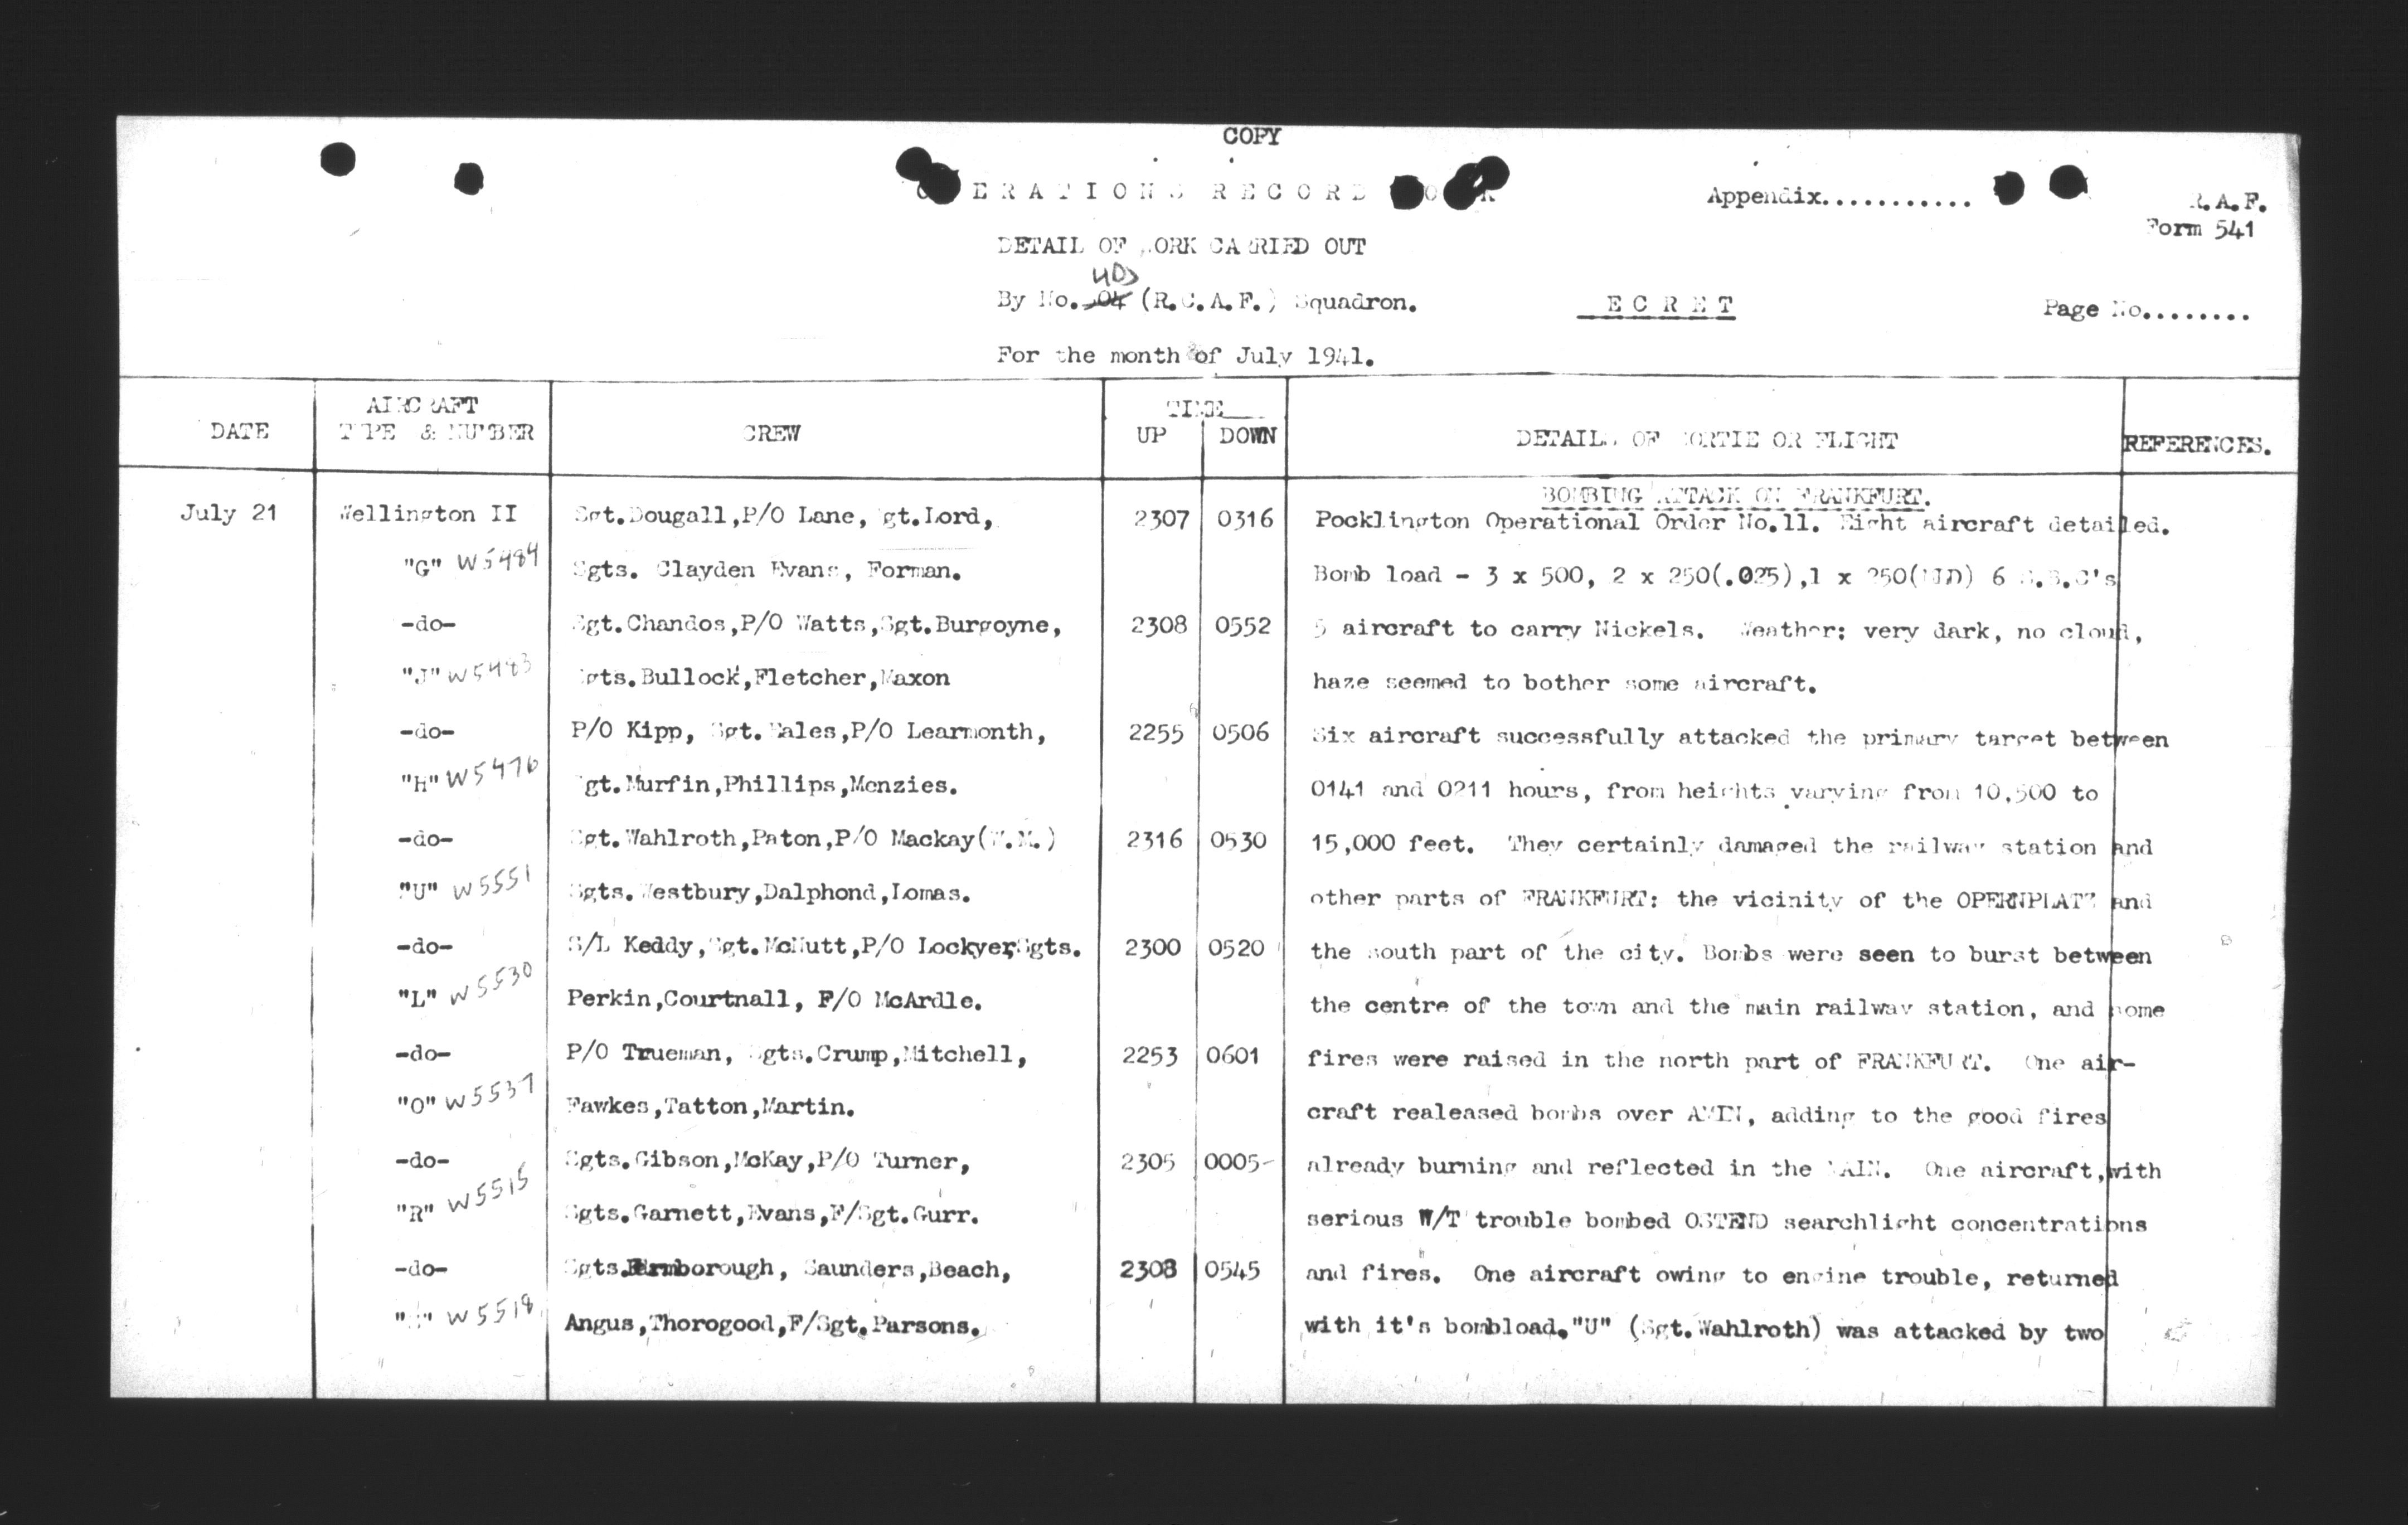 COPY
OPERATIONS RECORD BOOK
Appendix............
R.A.F.
Form 541
DETAIL OF WORK CARRIED OUT
405
By No. (R.C.A.F.) Squadron.
SECRET
Page No........
For the month of July 1941.
DATE
AIRCRAFT
TYPE & NUMBER
CREW
TIME
UP
DOWN
DETAILS OF SORTIE OR FLIGHT
REFERENCES.
BOMBING ATTACK ON FRANKFURT.
July 21 Wellington II Sgt.Dougall,P/O Lane, Sgt.Lord, 2307 0316 Pocklington Operational Order No.11. Eight aircraft detailed.
"G" W5484 Sgts. Clayden Evans, Forman. Bomb load - 3 x 500, 2 x 250(.025),1 x 250 6 S.B.C's
-do- Sgt.Chandos,P/O Watts,Sgt.Burgoyne, 2308 0552 5 aircraft to carry Nickels. Weather; very dark, no cloud,
"J" W5483 Sgts.Bullock,Fletcher,Maxon haze seemed to bother some aircraft.
-do- P/O Kipp, Sgt. P/O Learmonth, 2255 0506 Six aircraft successfully attacked the primary target between
"H" W5476 Sgt.Murfin,Phillips,Menzies. 0141 and 0211 hours, from heights varying from 10,500 to
-do- Sgt.Wahlroth,Paton,P/O Mackay 2316 0530 15,000 feet. They certainly damaged the railway station and
"U" W5551 Sgts.Westbury,Dalphond,Lomas. other parts of FRANKFURT: the vicinity of the OPERNPLATZ and
-do- S/L Keddy,Sgt.McNutt,P/O Lockyer,Sgts. 2300 0520 the south part of the city. Bombs were seen to burst between
"L" W5530 Perkin,Courtnall, F/O McArdle. the centre of the town and the main railway station, and some
-do- P/O Trueman, Sgts.Crump,Mitchell, 2253 0601 fires were raised in the north part of FRANKFURT. One air-
"O" W5537 Fawkes,Tatton,Martin. craft realeased bombs over adding to the good fires
-do- Sgts.Gibson,McKay,P/O Turner, 2305 0005- already burning and reflected in the MAIN. One aircraft,with
"R" W5515 Sgts.Garnett,Evans,F/Sgt.Gurr. serious W/T trouble bombed OSTEND searchlight concentrations
-do- Sgts.Farnborough, Saunders,Beach, 2308 0545 and fires. One aircraft owing to engine trouble, returned
W5518 Angus,Thorogood,F/Sgt.Parsons. with it's bombload."U" (Sgt.Wahlroth) was attacked by two